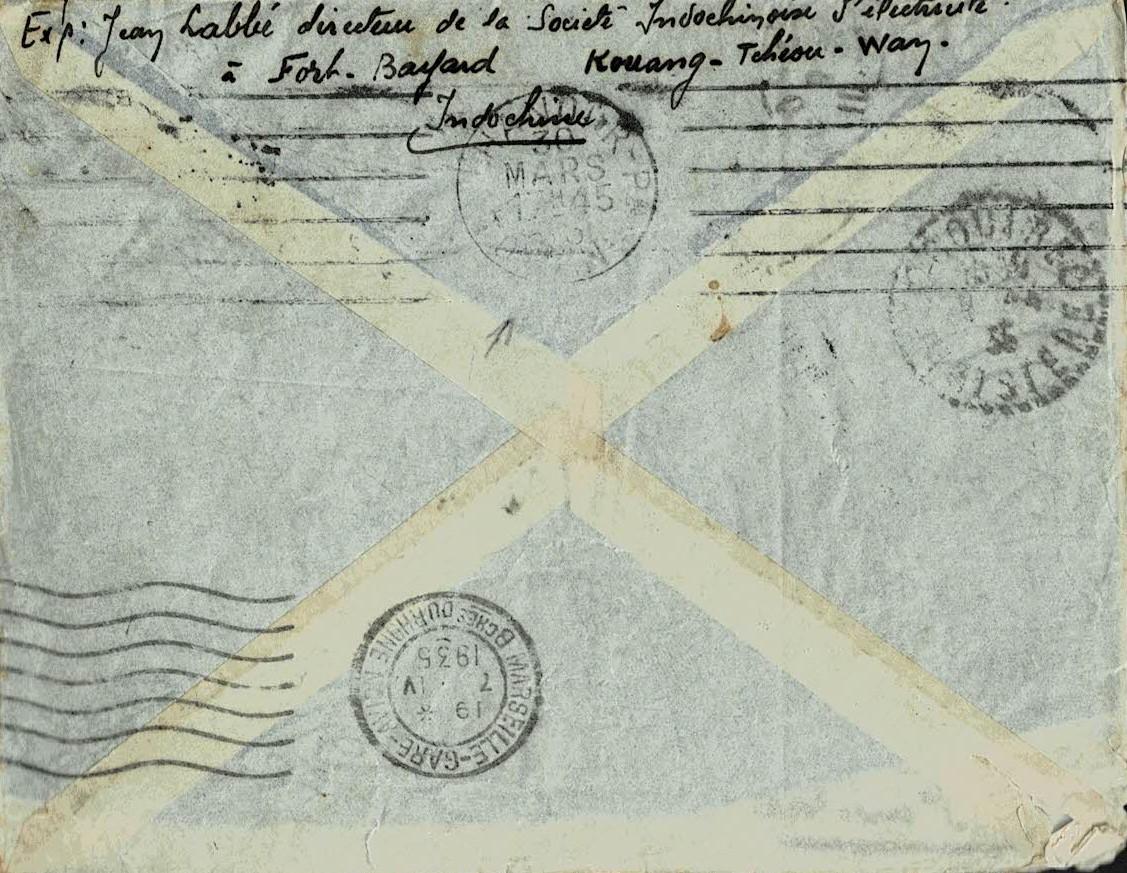 Exp: Jean Labbé directeur de la Société Indochinoise d'électricité.
à Fort-Bayard Kouang-Tchéou-Way.
Indochine
30
MARS
17H45
MARSEILLE-GARE-AVION Bches DU RHONE
19 *
7 IV
1935